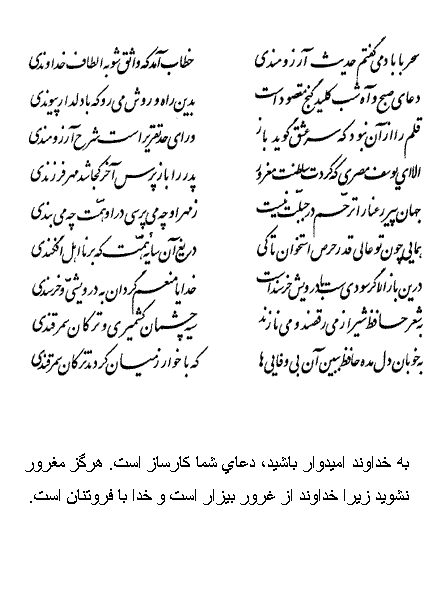 سحر با باد می گفتم حدیث آرزومندی خطاب آمد که واثق شو به الطاف خداوندی
دعای صبح و آه شب کلید گنج مقصود است بدین راه و روش می رو که با دلدار پیوندی
قلم را آن زبان نبود که سر عشق گوید باز ورای حد تقریر است شرح آرزومندی
الا ای یوسف مصری که کردت سلطنت مغرور پدر را باز پرس آخر کجا شد مهر فرزندی
جهان پیر رعنا را ترحم در جبلت نیست ز مهر او چه می پرسی در او همت چه می بندی
همایی چون تو عالی قدر حرص استخوان تا کی دریغ آن سایه همت که بر نااهل افکندی
درین بازار اگر سودی ست با درویش خرسند است خدایا منعمم گردان به درویشی و خرسندی
به شعر حافظ شیراز می رقصند و می نازند سیه چشمان کشمیری و ترکان سمرقندی
به خوبان دل مده حافظ ببین آن بی وفایی ها که با خوارزمیان کردند ترکان سمرقندی
به خداوند امیدوار باشید، دعاي شما کارساز است. هرگز مغرور
نشوید زیرا خداوند از غرور بیزار است و خدا با فروتنان است.